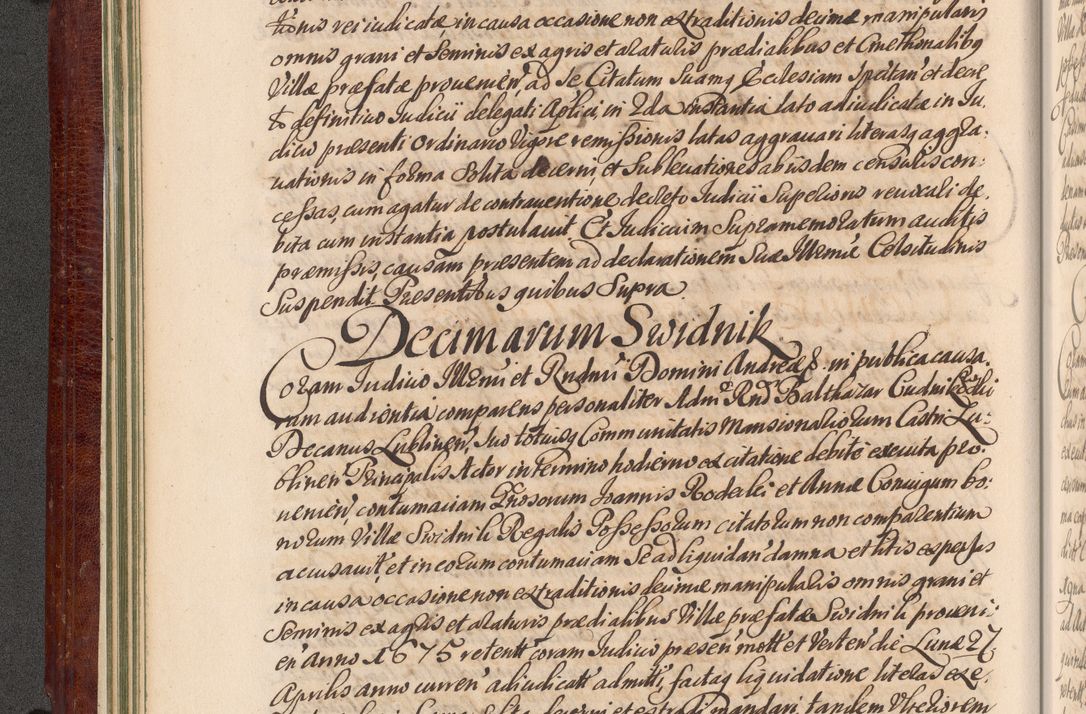 tionis rei iudicatæ, in causa occasione non extraditionis decimæ manipularis
omnis grani et Seminis ex agris et araturis prædialibus et Cmethonalibq
Villæ præfatæ prouenien', ad Se Citatum Suamq Ecclesiam Spectan' et decre
to definitiuo Iudicii delegati Aplici, in 2da instantia lato adiudicatæ in Iu.
dicio præsenti Ordinario Vigore remissionis latas aggrauari literasq aggra.
uationis in forma Solita decerni, et Subleuationes ab iisdem censuris con.
cessas, cum agatur de contrauentione decreto Iudicii Superioris reuocari de.
bita cum instantia postulauit. Et Iudicium Supramemoratum auditis
præmissis, causam præsentem ad declarationem Suæ Illmæ Celsitudinis
Suspendit. Præsentibus quibus Supra.
Decimarum Swidnik
Coram Iudicio Illmi et Rndmi Domini Andreæ &. in publica causa.
rum audientia comparens personaliter Admo Rndo Balthazar
Decanus Lublinen', Suo totiusq Communitatis Mansionariorum Castri Lu.
blinen' Principalis Actor in termino hodierno ex citatione debite executa pro.
uenien', contumaciam Gnosorum Joannis et Annæ Coniugum bo.
norum Villæ Swidniki Regalis Possessorum citatorum non comparentium
accusauit, et in eorum contumaciam Se ad liquidan' damna et litis expensas
in causa occasione non extraditionis decimæ manipularis omnis grani et
Seminis ex agris et araturis prædialibus Villæ præfatæ Swidniki proueni.
en' Anno 1675 retent' coram Iudicio præsen' mott' et Verten' die Lunæ 27
Aprilis anno curren' adiudicatt' admitti, factaq liquidatione literas exe.
decerni et extradi mandari, tandem Vlteriorem